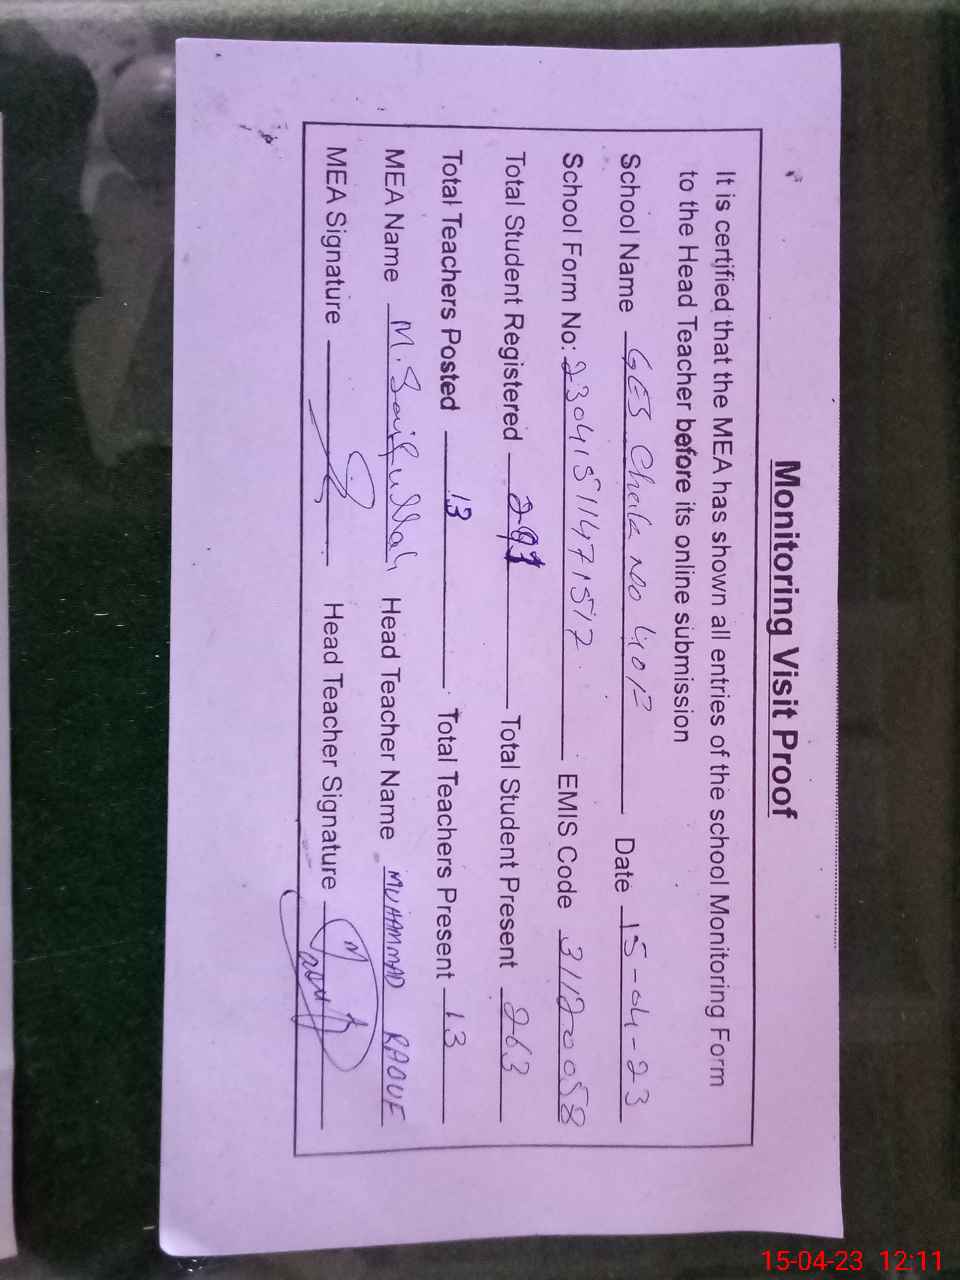 Monitoring Visit Proof
It is certified that the MEA has shown all entries of the school Monitoring Form
to the Head Teacher before its online submission
School Name GES Chak No 40P Date 15-04-23
School Form No: 23041511471512 EMIS Code 31120058
Total Student Registered 291 Total Student Present 263
Total Teachers Posted 13 Total Teachers Present 13
MEA Name M. Saifullah Head Teacher Name MUHAMMAD RAOUF
MEA Signature Head Teacher Signature
15-04-23 12:11